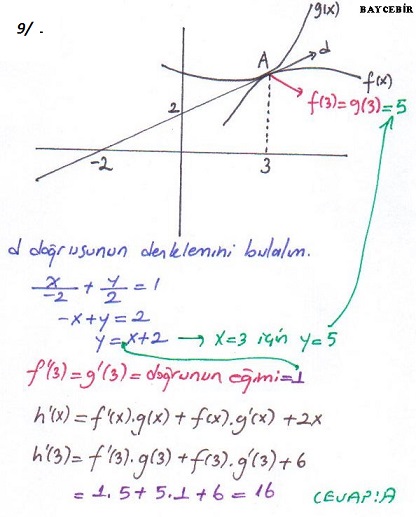 BAYCEBİR
9/.
g(x)
A
d
f(x)
f(3)=g(3)=5
2
-2
3
d doğrusunun denklemini bulalım.
x/-2 + y/2 = 1
-x+y=2
y=x+2 → x=3 için y=5
f'(3)=g'(3)=doğrunun eğimi=1
h'(x)=f'(x).g(x)+f(x).g'(x)+2x
h'(3)=f'(3).g(3)+f(3).g'(3)+6
=1.5+5.1+6=16
CEVAP:A